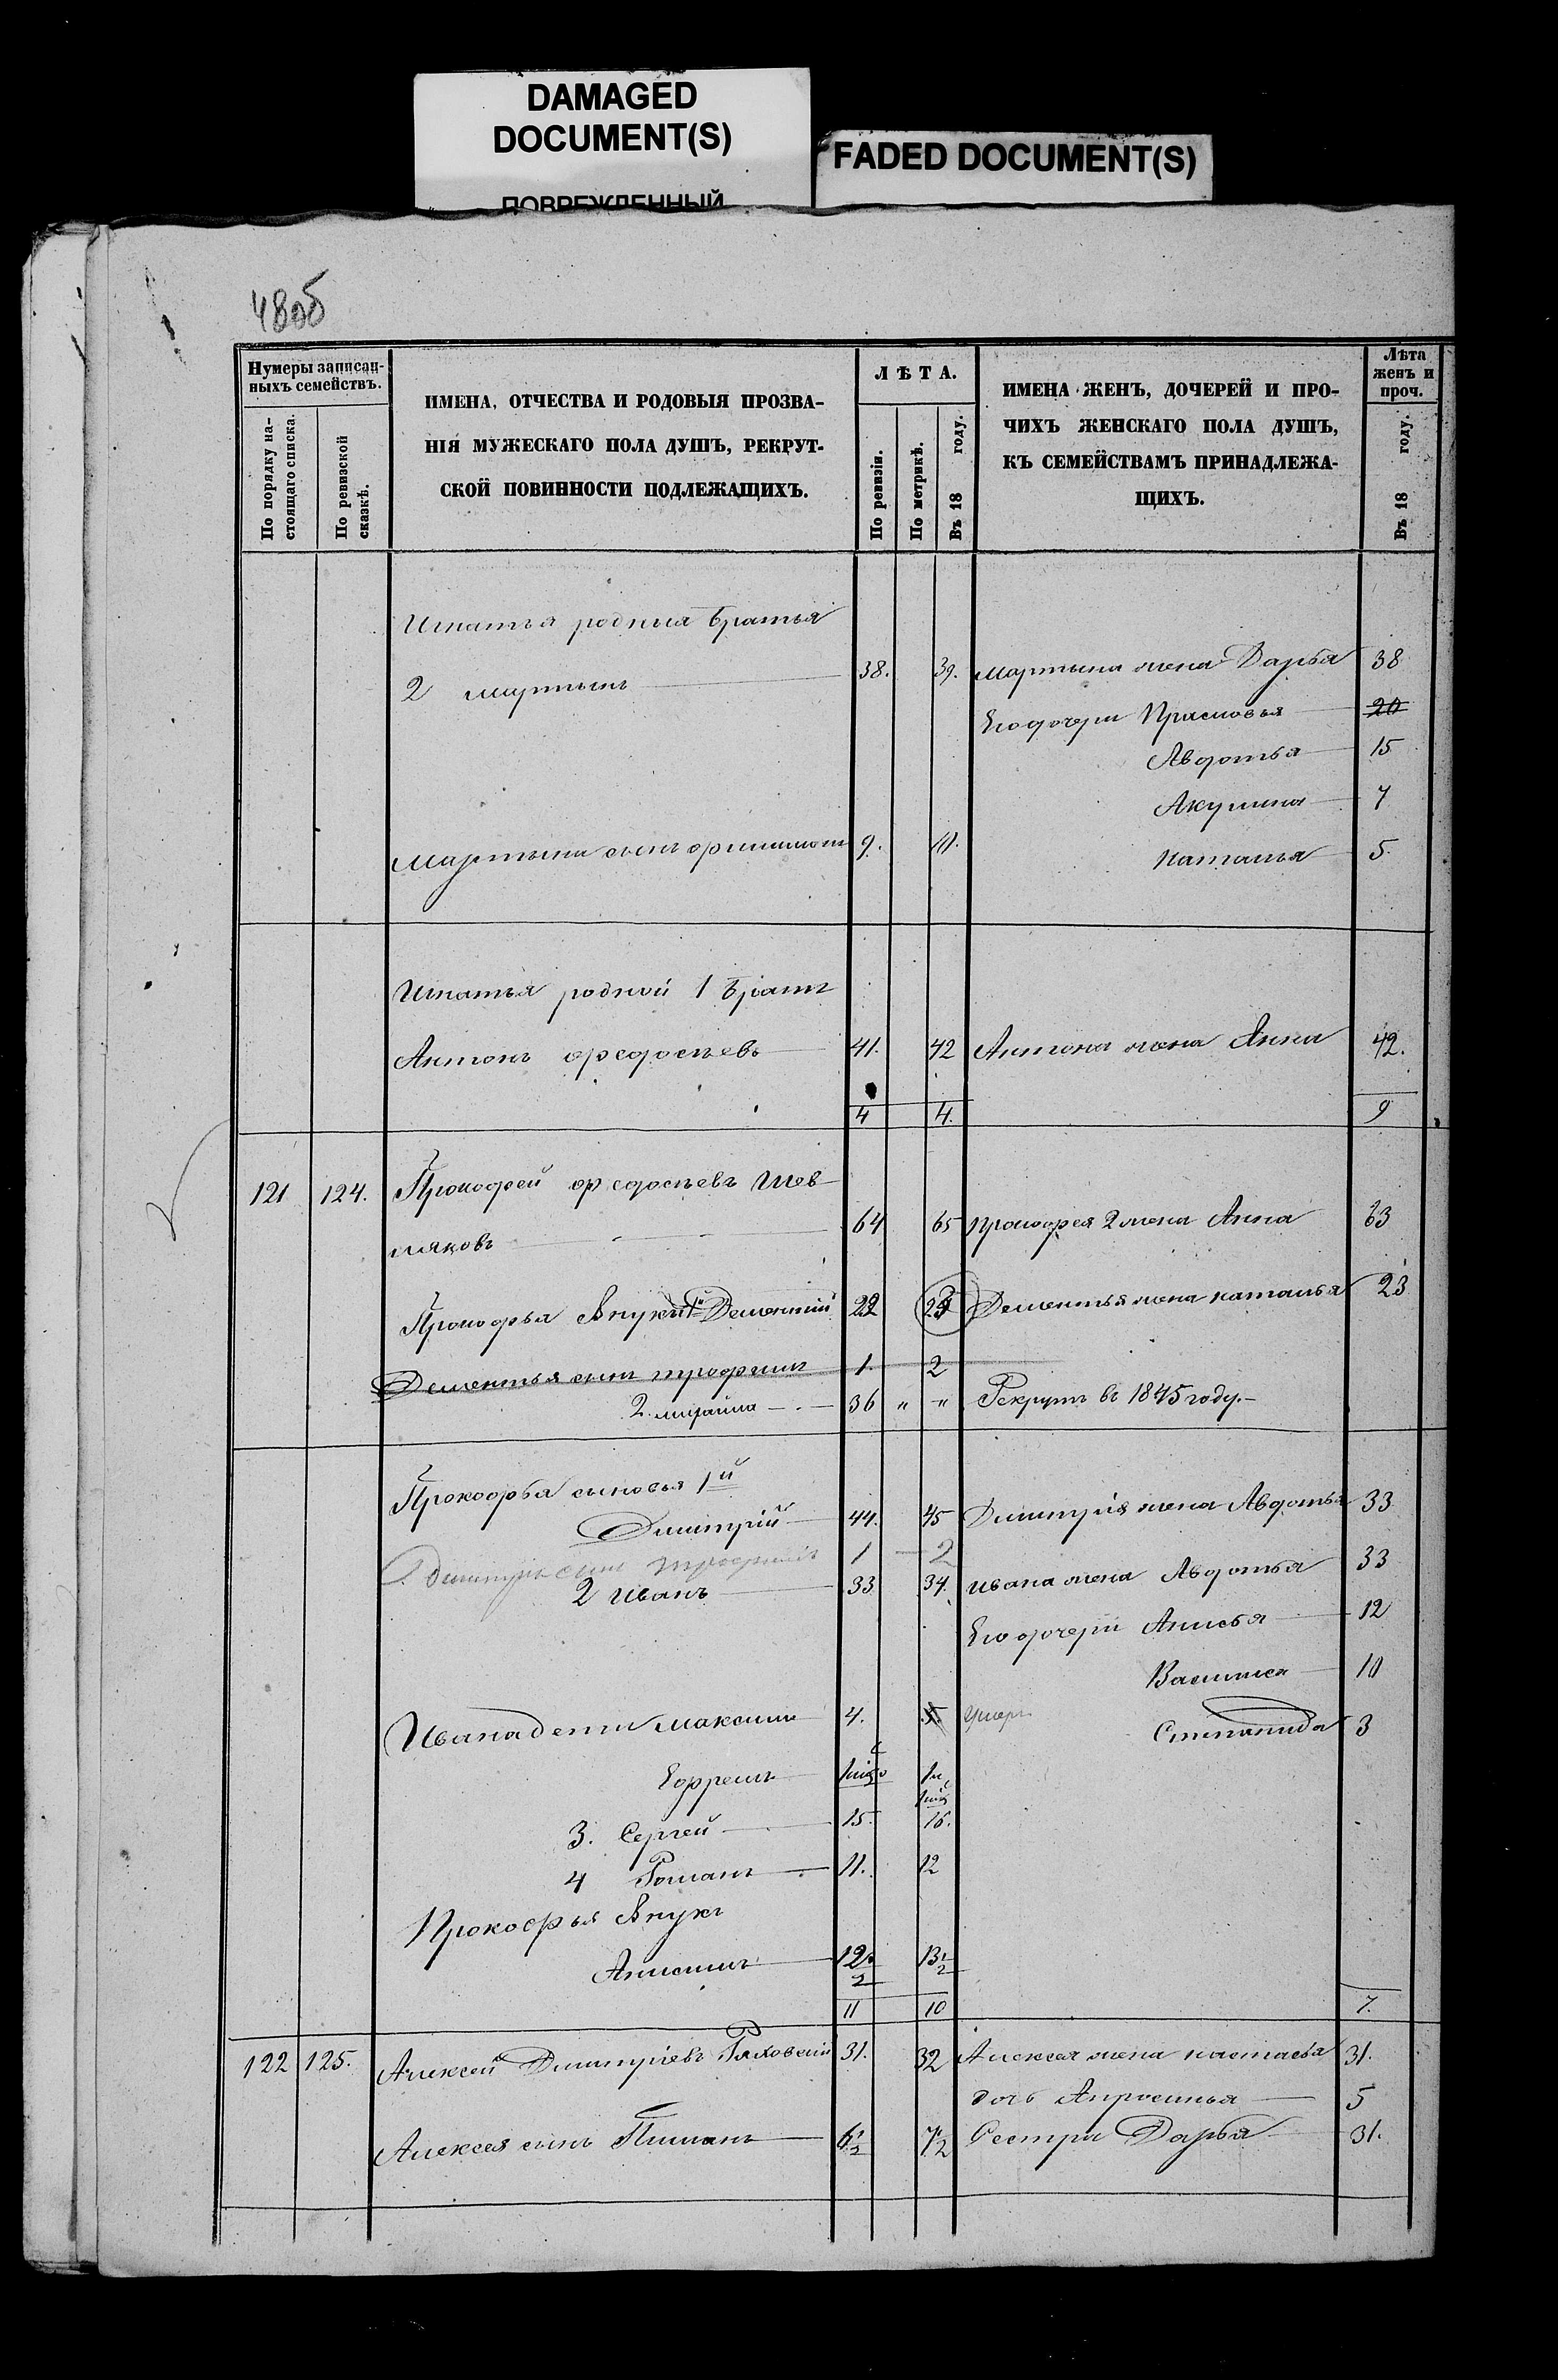 DAMAGED
DOCUMENT(S)
ПОВРЕЖДЕННЫЙ
FADED DOCUMENT(S)
48об
Нумеры записан-
ныхъ семействъ.
По порядку на-
стоящаго списка.
По ревизской
сказкѣ.
ИМЕНА, ОТЧЕСТВА И РОДОВЫЯ ПРОЗВА-
НІЯ МУЖЕСКАГО ПОЛА ДУШЪ, РЕКРУТ-
СКОЙ ПОВИННОСТИ ПОДЛЕЖАЩИХЪ.
ЛѢТА.
По ревизіи.
По метрикѣ.
Въ 18 году.
ИМЕНА ЖЕНЪ, ДОЧЕРЕЙ И ПРО-
ЧИХЪ ЖЕНСКАГО ПОЛА ДУШЪ,
КЪ СЕМЕЙСТВАМЪ ПРИНАДЛЕЖА-
ЩИХЪ.
Лѣта
женъ и
проч.
Въ 18 году.
Игнатья родныя братья
2 мартынъ 38. 39. мартына жена Дарья 38
Его дочери Прасковья 20
Авдотья 15
Акулина 7
Мартына сынъ 9. 11. наталья 5.
Игнатья родной 1 братъ
Антонъ федосѣевъ 41. 42 Антона жена Анна 42.
4 4. 9
121 124. Прокофей федосѣевъ Шев
ляковъ 64 65 прокофея 2 жена Анна 63
Прокофья Внуки 1й Дементий 22 Дементья жена наталья 23
Дементья сынъ трофимъ 1. 2
2. михайла 36 " " Рекрутъ въ 1845 году.
Прокофья сыновья 1й
Димитрій 44. 45 Димитрія жена Авдотья 33
Димитрія сынъ трофимъ 1 2
2 Иванъ 33 34. ивана жена Авдотья 33
Его дочери Анисья 12
Василиса 10
Ивана дети максимъ 4. 5. умеръ Степанида 3
Ефремъ
3. Сергей 15. 16.
4 Романъ 11. 12
Прокофья Внукъ
Анисимъ 12 1/2 13 1/2
11 10 7.
122 125. Алексей Димитріевъ Ряховский 31. 32 Алексея жена настасья 31.
дочь Апросинья 5
Алексея сынъ Пиманъ 6 1/2 7 1/2 Сестра Дарья 31.